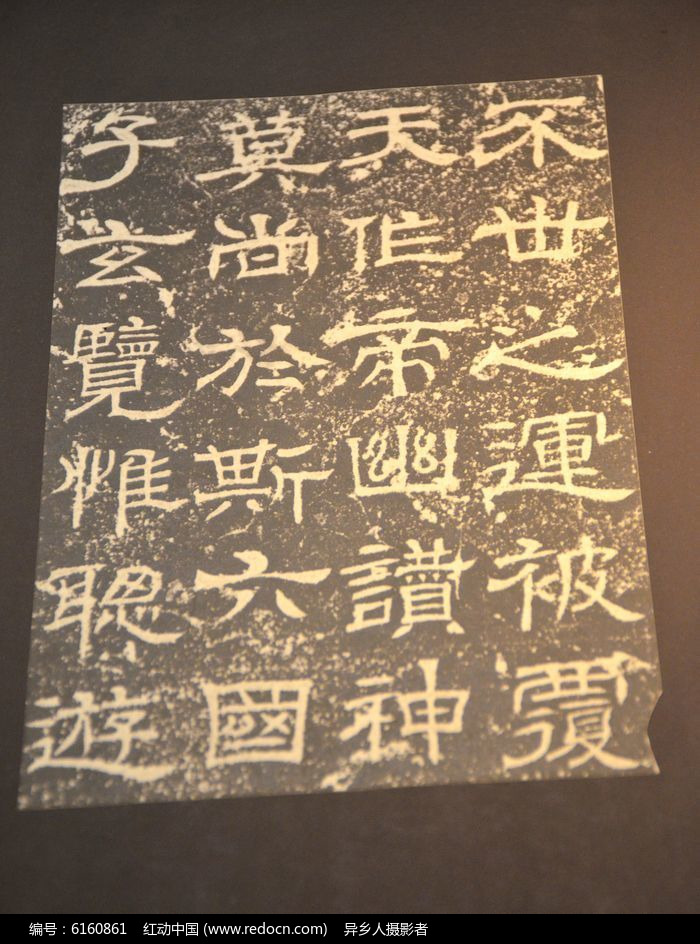 不世之運被覆
天作帝幽讃神
莫尚於斯六國
子玄覽惟聰遊
编号：6160861 红动中国 (www.redocn.com) 异乡人摄影者